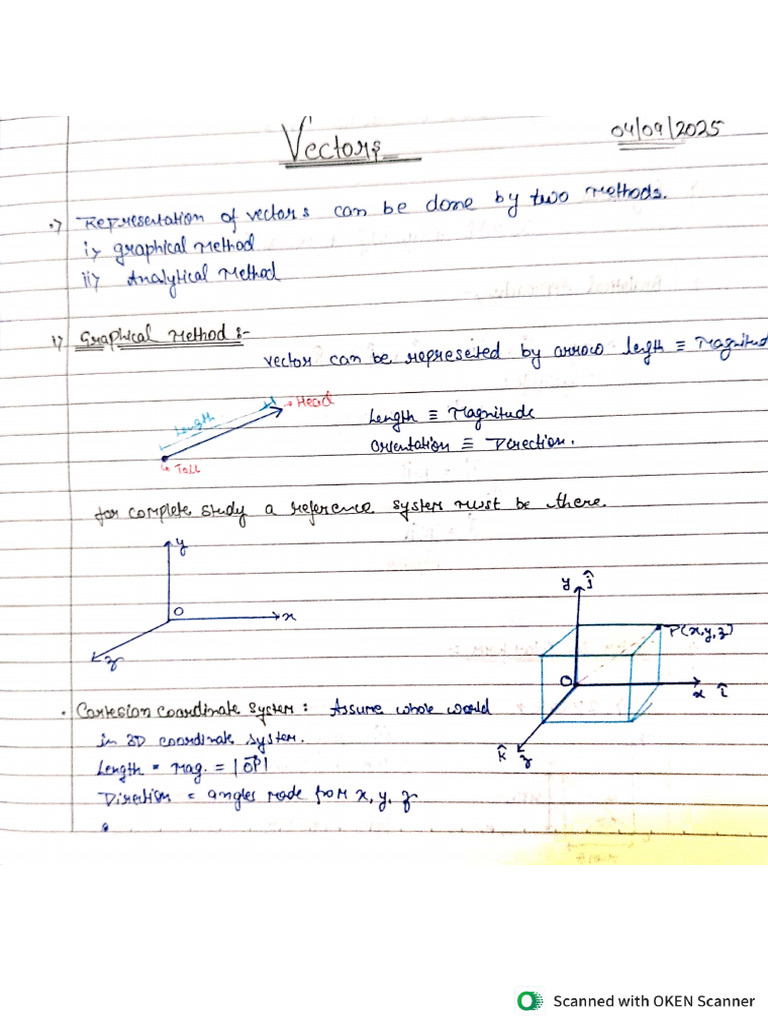 Vectors
04/09/2025
•> Representation of vectors can be done by two methods.
i> graphical Method
ii> Analytical Method
1> Graphical Method :-
vector can be represeted by arrow length ≡ Magnitud
Length
→ Head
Tail
Length ≡ Magnitude
Orientation ≡ Direction.
for complete study a reference system must be there.
y
O
x
z
y ĵ
P(x,y,z)
O
x î
k̂ z
• Cartesian Coordinate System : Assume whole world
in 3D coordinate system.
Length = Mag. = |OP|
Direction = angles made from x, y, z
Scanned with OKEN Scanner